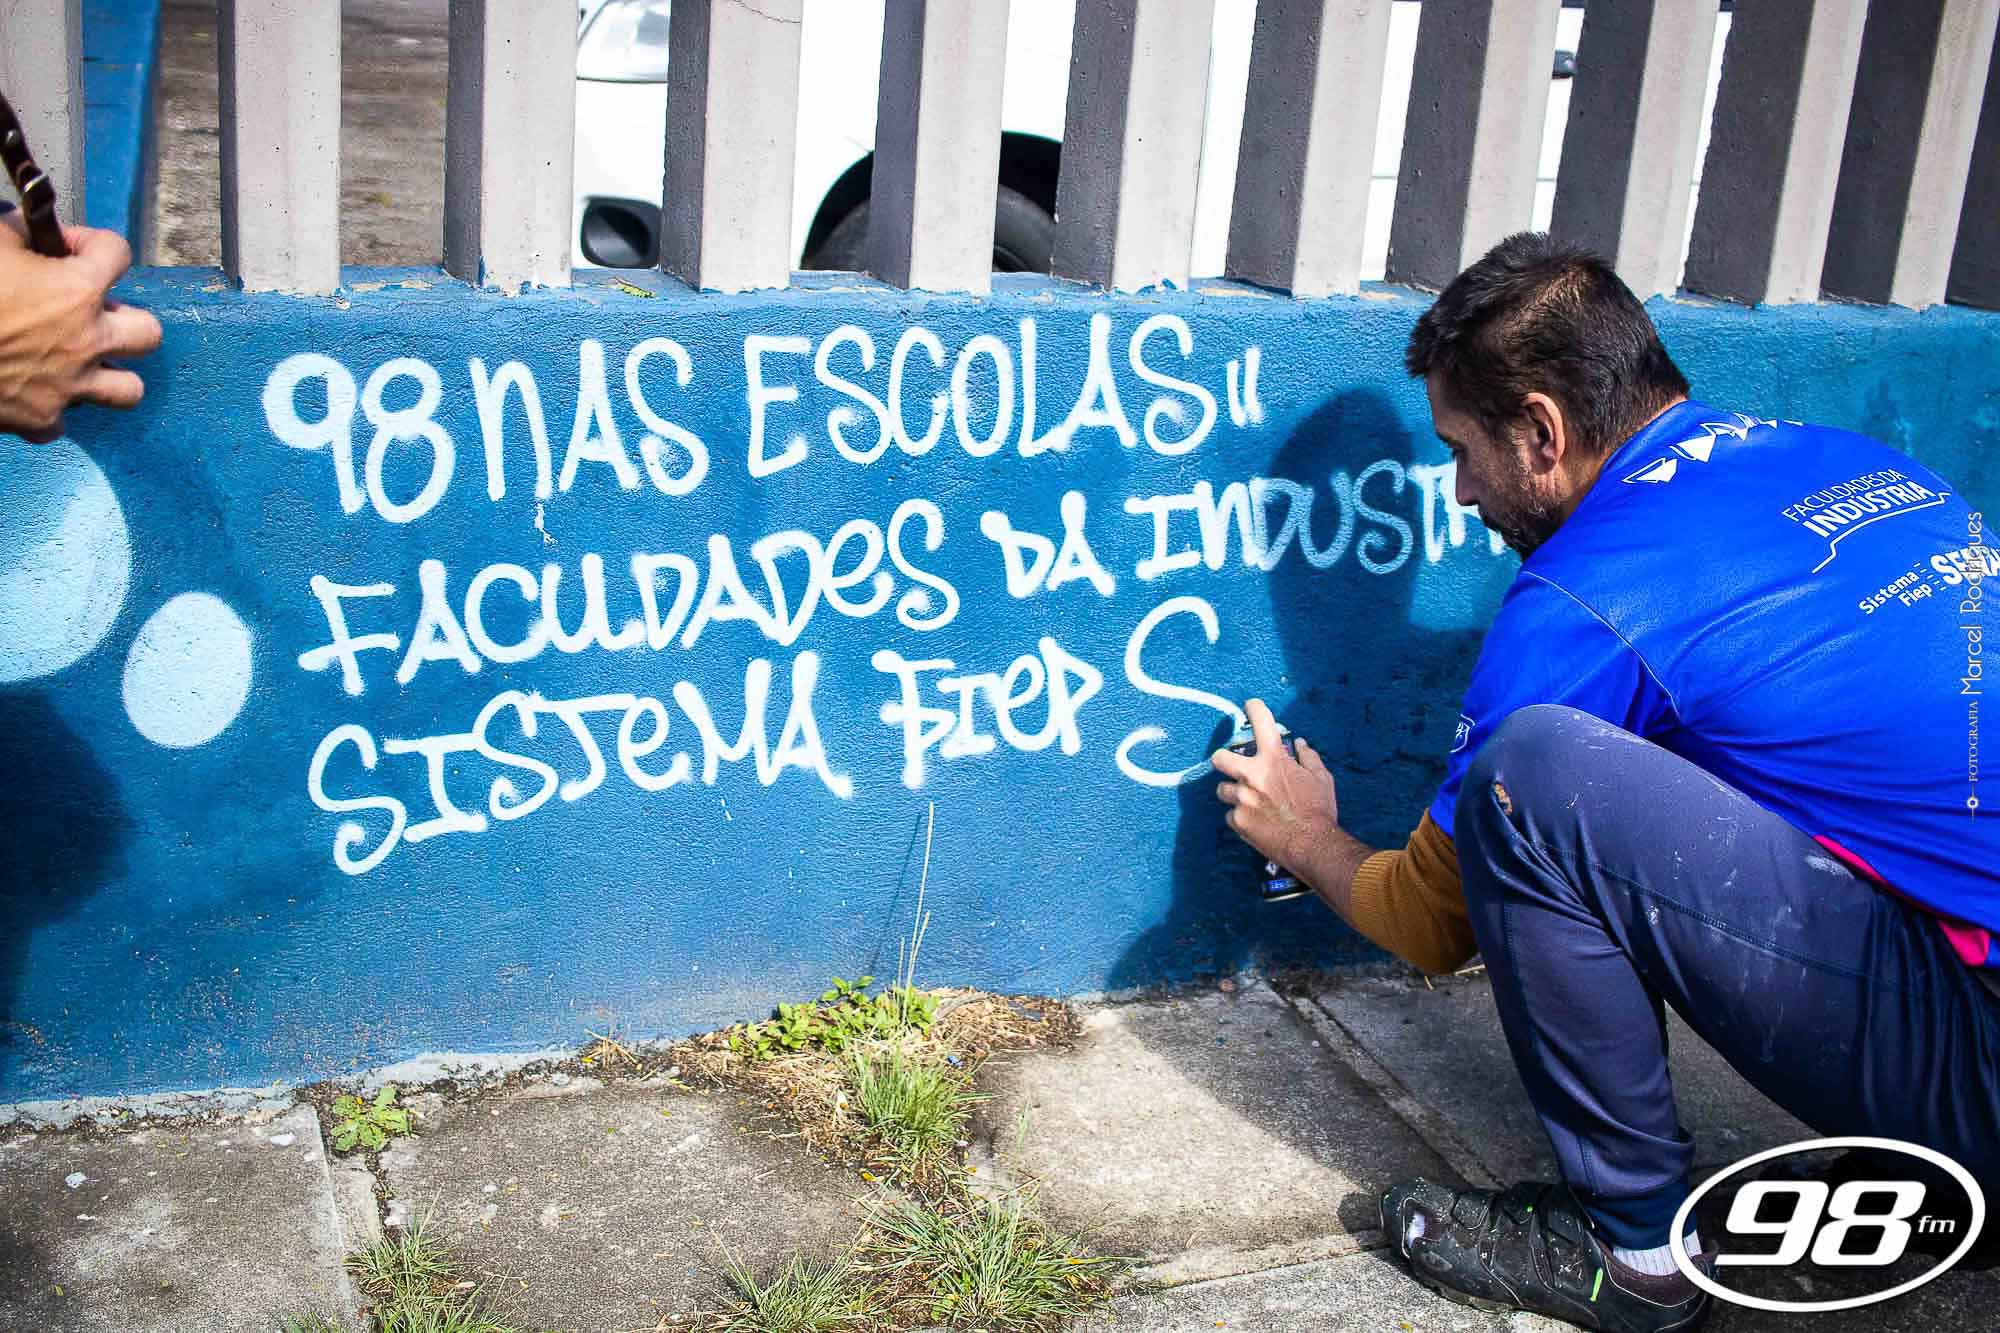 98 NAS ESCOLAS "
FACULDADES DA INDUST
SISTEMA FIEP S
FACULDADES DA
INDÚSTRIA
Sistema
Fiep
FOTOGRAFIA Marcel Rodrigues
98 fm